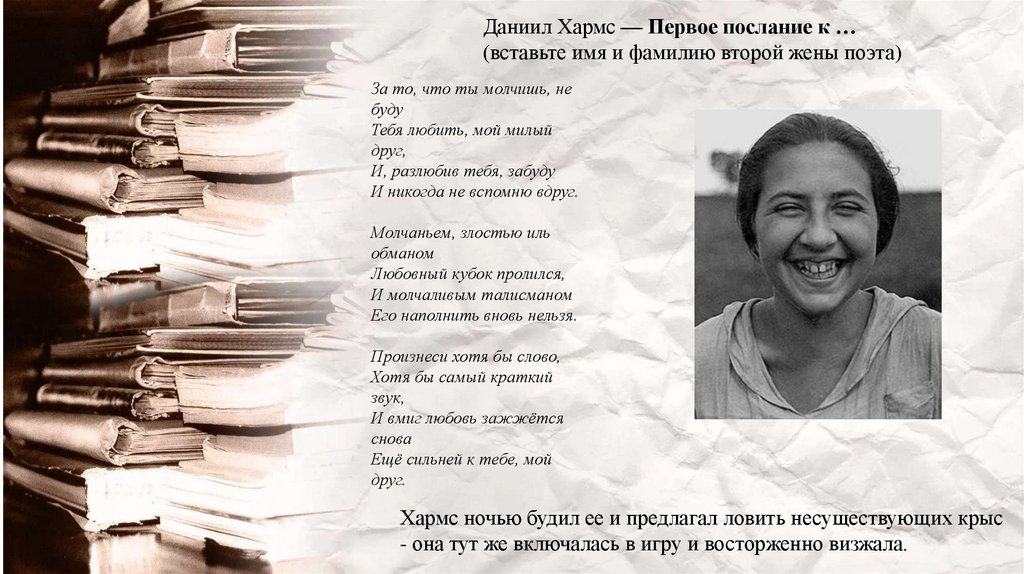 Даниил Хармс — Первое послание к …
(вставьте имя и фамилию второй жены поэта)
За то, что ты молчишь, не
буду
Тебя любить, мой милый
друг,
И, разлюбив тебя, забуду
И никогда не вспомню вдруг.
Молчаньем, злостью иль
обманом
Любовный кубок пролился,
И молчаливым талисманом
Его наполнить вновь нельзя.
Произнеси хотя бы слово,
Хотя бы самый краткий
звук,
И вмиг любовь зажжётся
снова
Ещё сильней к тебе, мой
друг.
Хармс ночью будил ее и предлагал ловить несуществующих крыс
- она тут же включалась в игру и восторженно визжала.